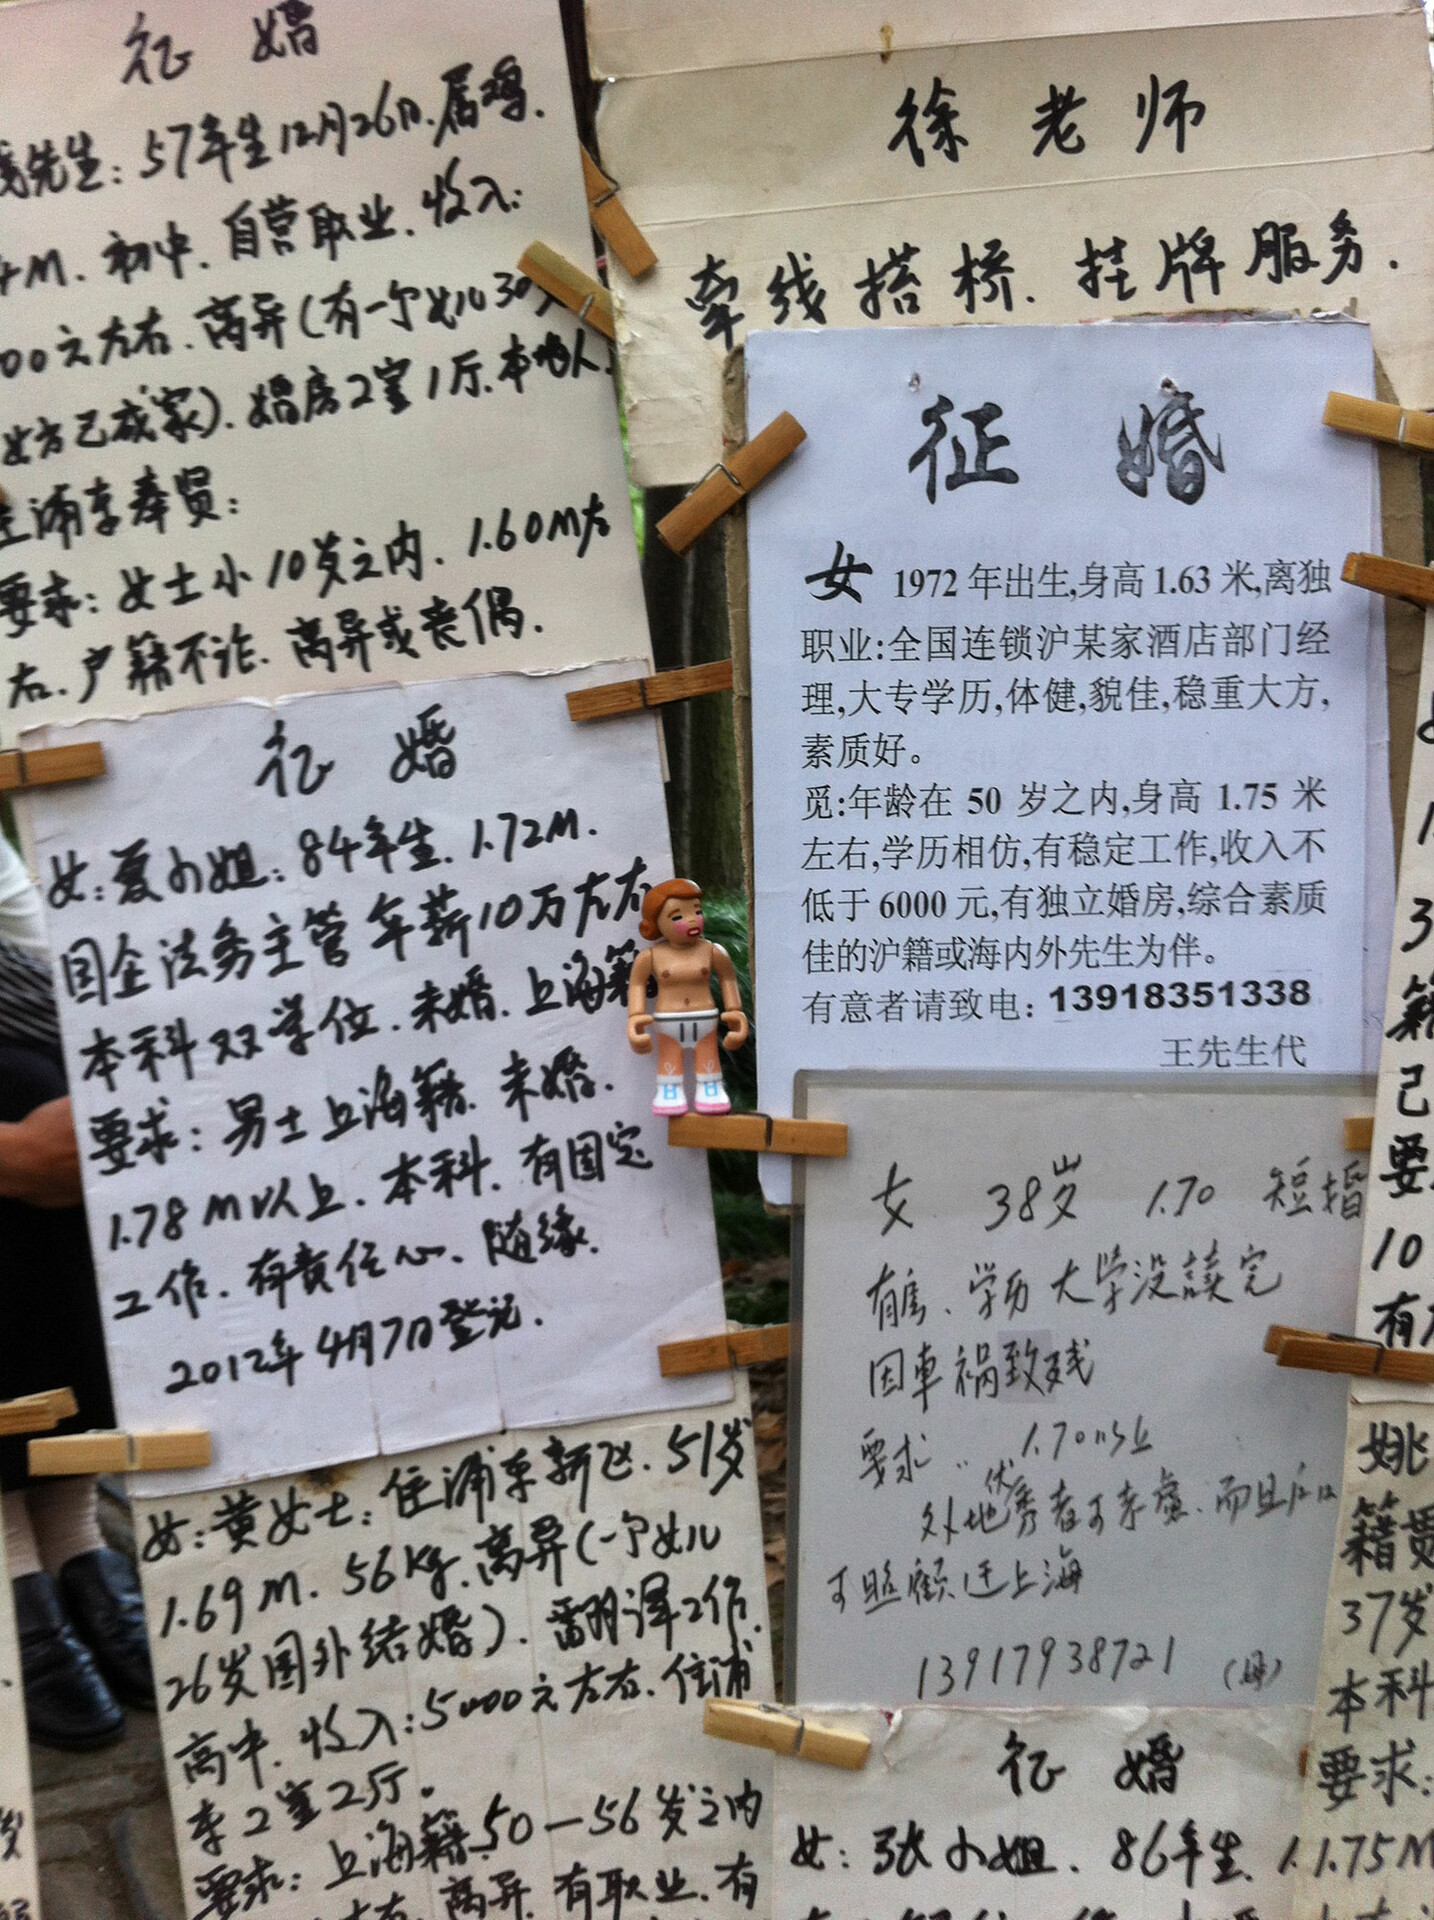 征 婚
先生：57年生12月26日.属鸡.
M. 初中. 自营职业. 收入：
00元左右. 离异(有一个女儿30
女方已成家). 婚房2室1厅. 本地人.
浦东奉贤：
要求：女士小10岁之内. 1.60M左
右. 户籍不论. 离异或丧偶.
征 婚
女：夏小姐：84年生. 1.72M.
国企法务主管 年薪10万左右
本科双学位. 未婚. 上海籍
要求：男士上海籍. 未婚.
1.78M以上. 本科. 有固定
工作. 有责任心. 随缘.
2012年4月7日登记.
女：黄女士：住浦东新区. 51岁
1.69M. 56kg. 离异(一个女儿
26岁国外结婚). 翻译工作.
高中. 收入：5000元左右. 住浦
东2室2厅。
要求：上海籍. 50—56岁之内
离异. 有职业. 有
徐老师
牵线搭桥. 挂牌服务.
征 婚
女 1972年出生,身高1.63米,离独
职业:全国连锁沪某家酒店部门经
理,大专学历,体健,貌佳,稳重大方,
素质好。
觅:年龄在 50 岁之内,身高 1.75 米
左右,学历相仿,有稳定工作,收入不
低于 6000 元,有独立婚房,综合素质
佳的沪籍或海内外先生为伴。
有意者请致电：13918351338
王先生代
女 38岁 1.70 短婚
有房、学历大学没讀完
因車祸致残
要求 1.70以上
外地优秀者可考虑.而且
可照顧迁上海
13917938721 (母)
征 婚
女：张小姐. 86年生. 1.75M
3
籍
己
要
10
有
姚
籍贯
37岁
本科
要求：